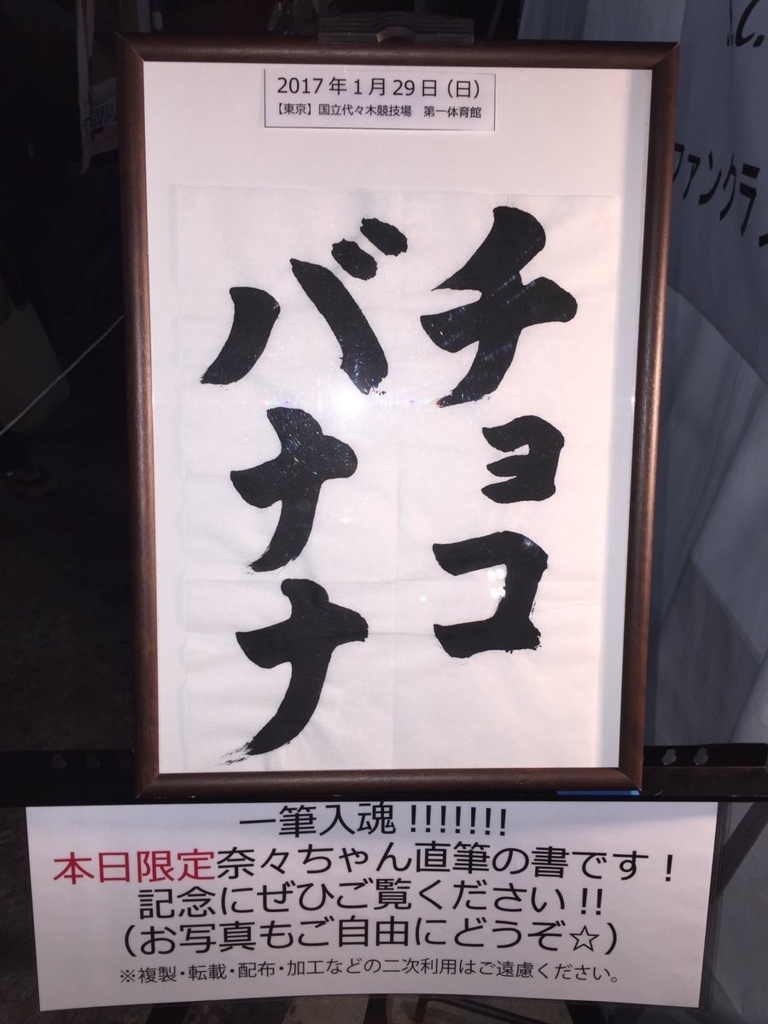 2017年1月29日（日）
【東京】国立代々木競技場　第一体育館
チョコ
バナナ
ファンクラ
一筆入魂!!!!!!!
本日限定奈々ちゃん直筆の書です！
記念にぜひご覧ください!!
（お写真もご自由にどうぞ☆）
※複製・転載・配布・加工などの二次利用はご遠慮ください。